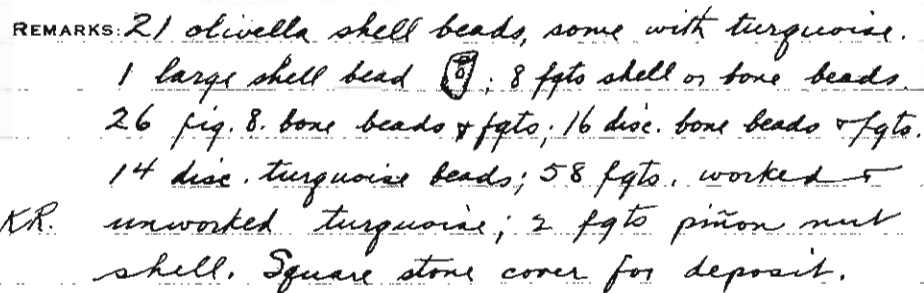 REMARKS: 21 olivella shell beads, some with turquoise.
1 large shell bead . 8 fgts shell or bone beads.
26 fig. 8. bone beads & fgts; 16 disc. bone beads & fgts.
14 disc. turquoise beads; 58 fgts. worked &
KR. unworked turquoise; 2 fgts piñon nut
shell. Square stone cover for deposit.